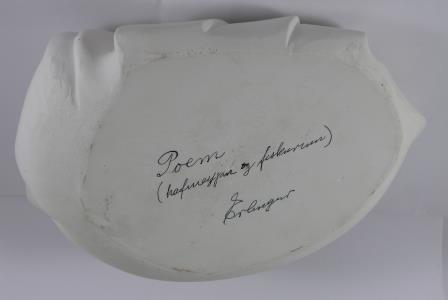 Poem
(hafmeyjan og fiskurinn)
Erlingur